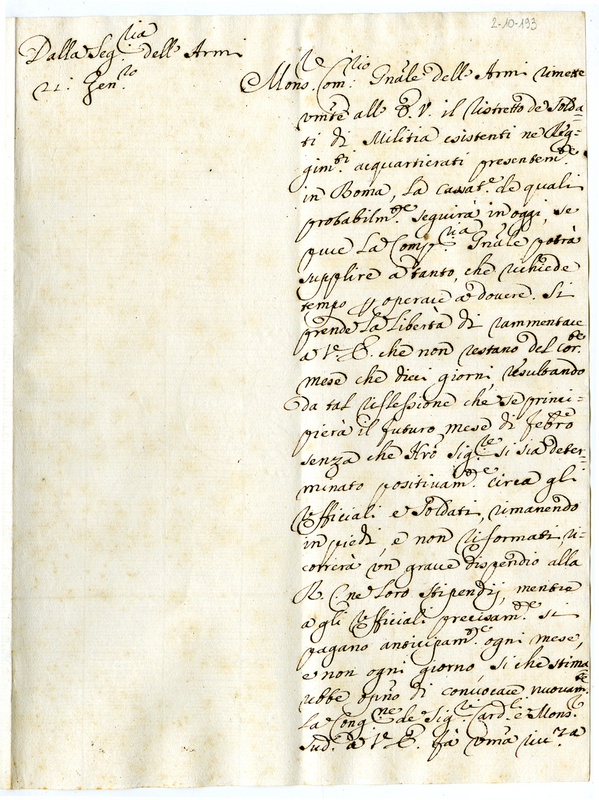 2-10-193
Dalla Seg.ria dell'Armi
21: Gen.ro
Mons.re Com.rio Gnāle dell'Armi rimette
vm̃te all'E. V. il ristretto de Solda=
ti di Militia esistenti ne Reg=
gim.ti acquartierati presentem.te
in Roma, La cassat.e de quali
probabilm.te seguirà in oggi, se
pure La Comp.ria Gnāle potrà
supplire a tanto, che richiede
tempo p operare a dovere. Si
prende La Libertà di rammentare
a V. E. che non restano del cor.te
mese che dieci giorni, resultando
da tal riflessione che se princi=
pierà il futuro mese di febro
senza che N̄ro Sig.re si sia deter=
minato positivam.te circa gli
Ufficiali e Soldati, rimanendo
in piedi, e non riformati, ri=
correrà un grave dispendio alla
R. C. ne Loro stipendij, mentre
a gli Ufficiali precisam.te si
pagano anticipam.te ogni mese,
e non ogni giorno, si che stima
rebbe opño di convocare nuovam.te
La Cong.ne de Sig.ri Card.li e Mons.
Sud.o a V. E. fà vm̃a riv.za